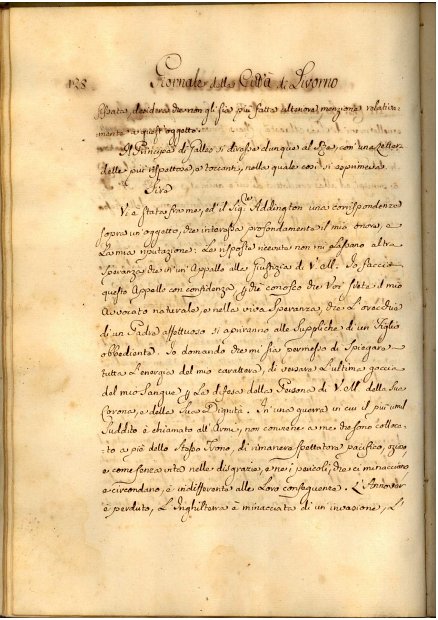 138 Giornale della Città di Livorno
Maestà desidera che non gli sia più fatta ulteriore menzione relativa-
mente a quest'oggetto.
Il Principe di Galles si diresse dunque al Re, con una Lettera
delle più rispettose, e toccanti, nella quale così si esprimeva
Sire
Vi è stata fra me, ed il Sig.re Addington una corrispondenza
sopra un'oggetto, che interessa profondamente il mio onore, e
La mia riputazione: Le risposte ricevute non mi lasciano altra
speranza che in un'Appello alla Giustizia di V. M. Io faccio
questo Appello con confidenza p che conosco che Voi siete il mio
Avvocato naturale, e nella viva Speranza, che L'orecchio
di un Padre affettuoso si apriranno alle Suppliche di un Figlio
obbediente. Io domando che mi sia permesso di Spiegare
tutta L'energia del mio carattere, di versare L'ultima goccia
del mio Sangue p La difesa della Persona di V. M. della Sua
Corona, e della Sua Dignità. In una guerra in cui il più umil
Suddito è chiamato all'Armi, non conviene a me che sono colloca-
to a piè dello stesso Trono, di rimanere spettatore pacifico, ozioso,
e come senza vita nelle disgrazie, e nei pericoli, che ci minacciano
e circondano, e indifferente alle Loro conseguenze. L'Annover
è perduto, L'Inghilterra è minacciata di un invasione, L'I